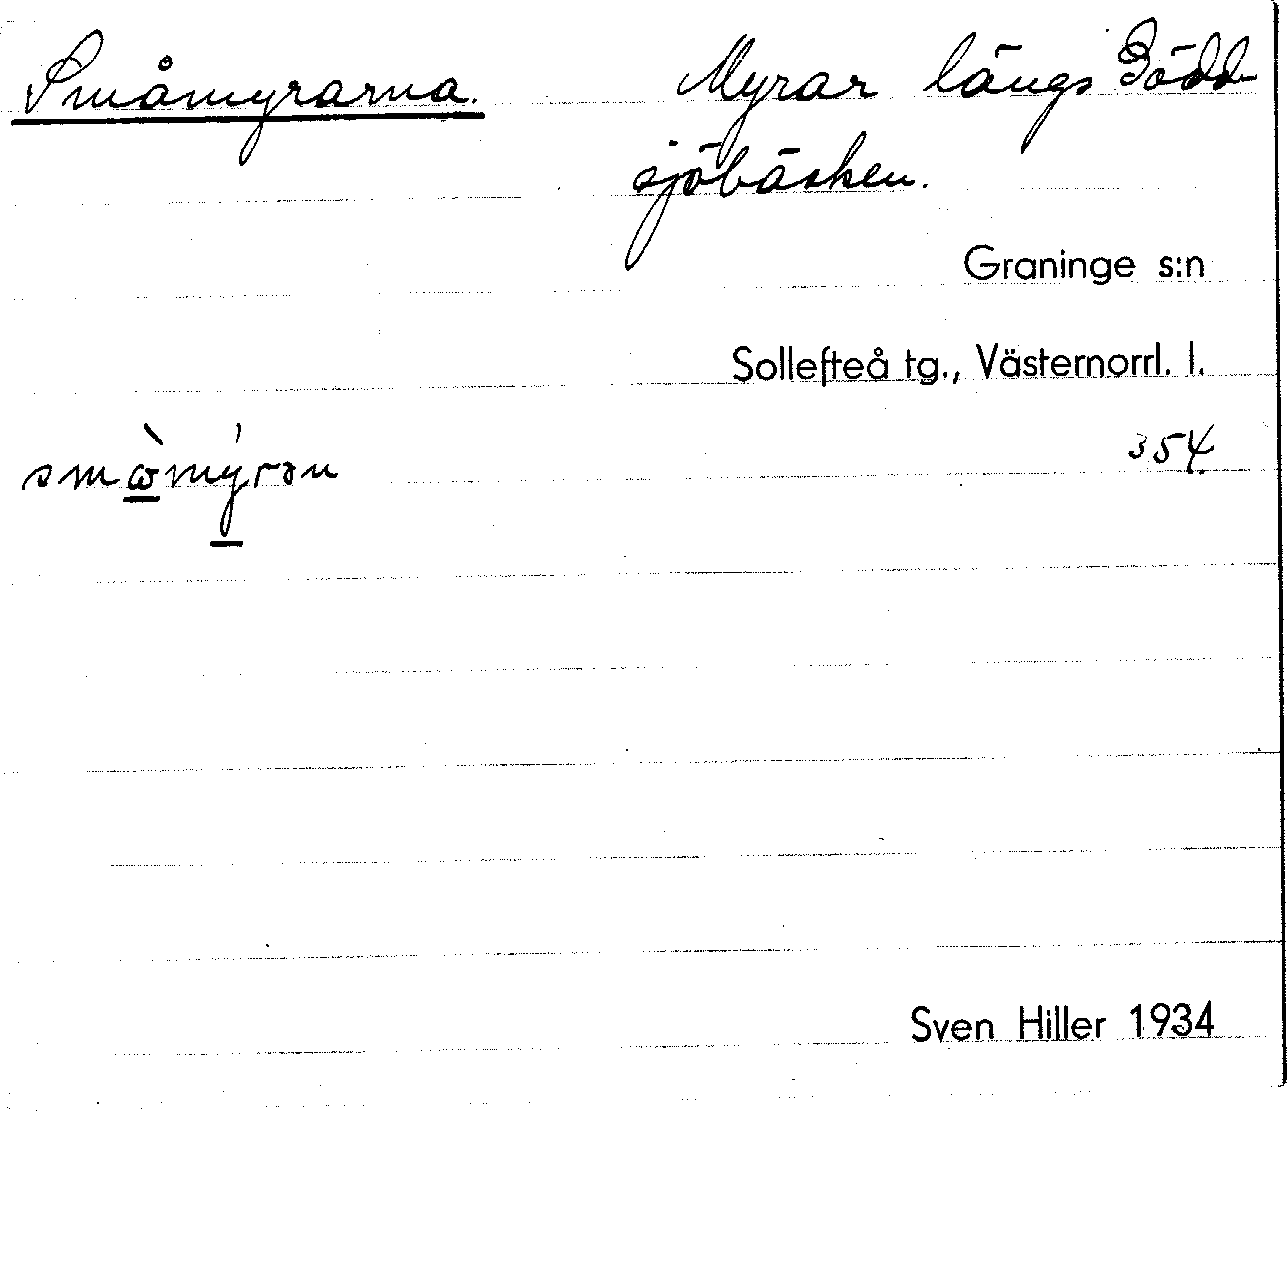 Småmyrarna. Myrar längs Bödd
sjöbäcken.
Graninge s:n
Sollefteå tg., Västernorrl. l.
354.
Sven Hiller 1934